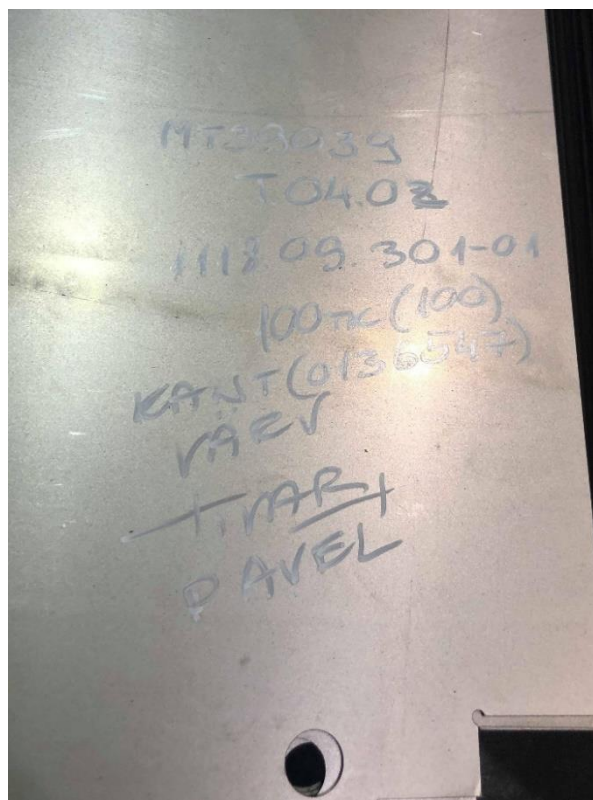 MT39039
T.04.02
1118.09.301-01
100TK (100)
KANT (0136547)
VÄRV
PAVEL